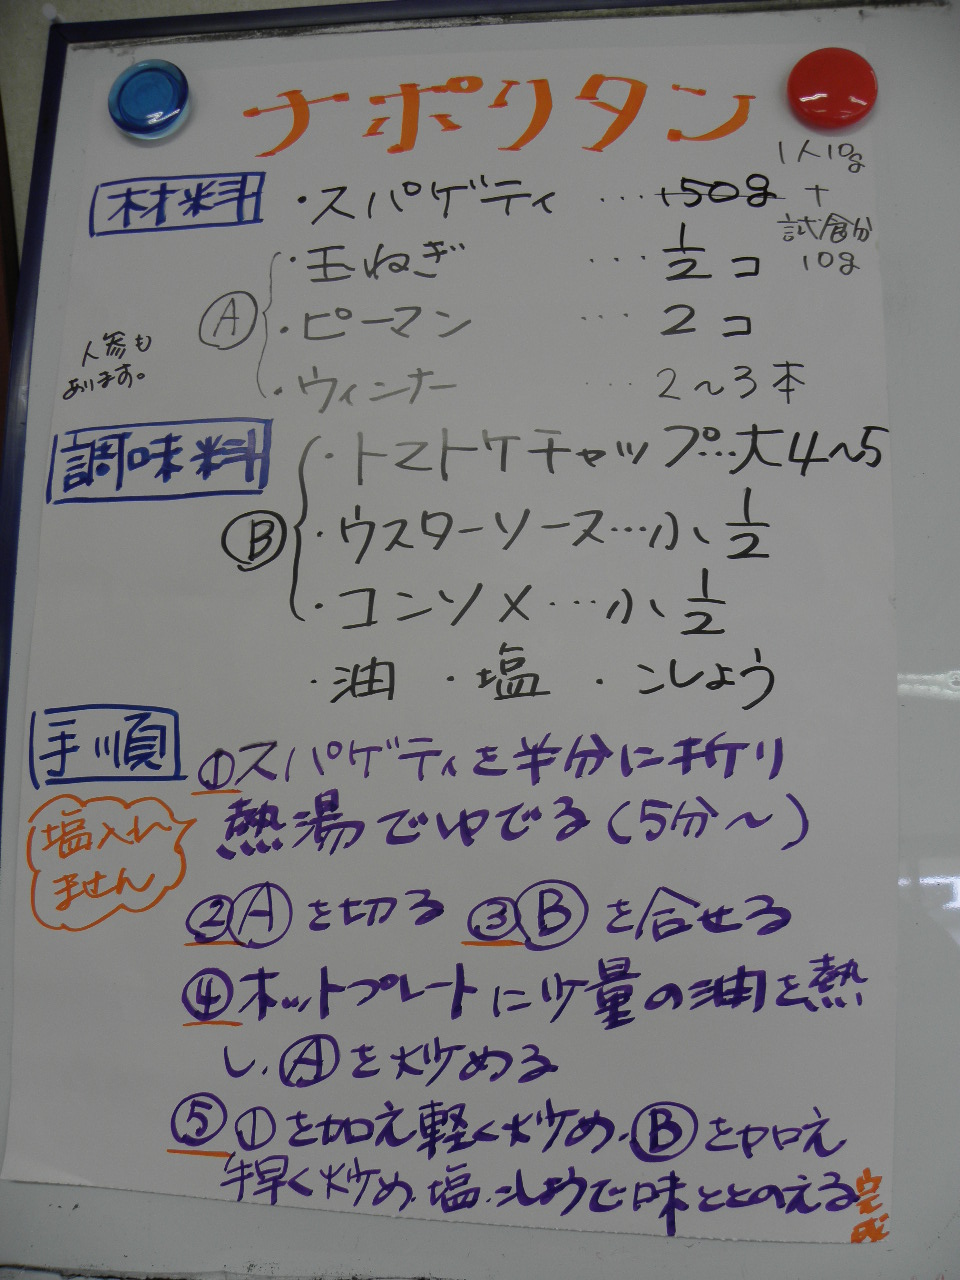 ナポリタン
材料
・スパゲティ …
1人10g
+
試食分
10g
Ⓐ
・玉ねぎ … 1/2 コ
・ピーマン … 2 コ
・ウィンナー … 2〜3本
人参も
あります。
調味料
Ⓑ
・トマトケチャップ…大4〜5
・ウスターソース…小 1/2
・コンソメ…小 1/2
・油 ・塩 ・こしょう
手順
①スパゲティを半分に折り
熱湯でゆでる(5分〜)
塩入れ
ません
②Ⓐを切る ③Ⓑを合せる
④ホットプレートに少量の油を熱
し、Ⓐを炒める
⑤①を加え軽く炒め、Ⓑを加え
手早く炒め、塩、こしょうで味をととのえる
完成